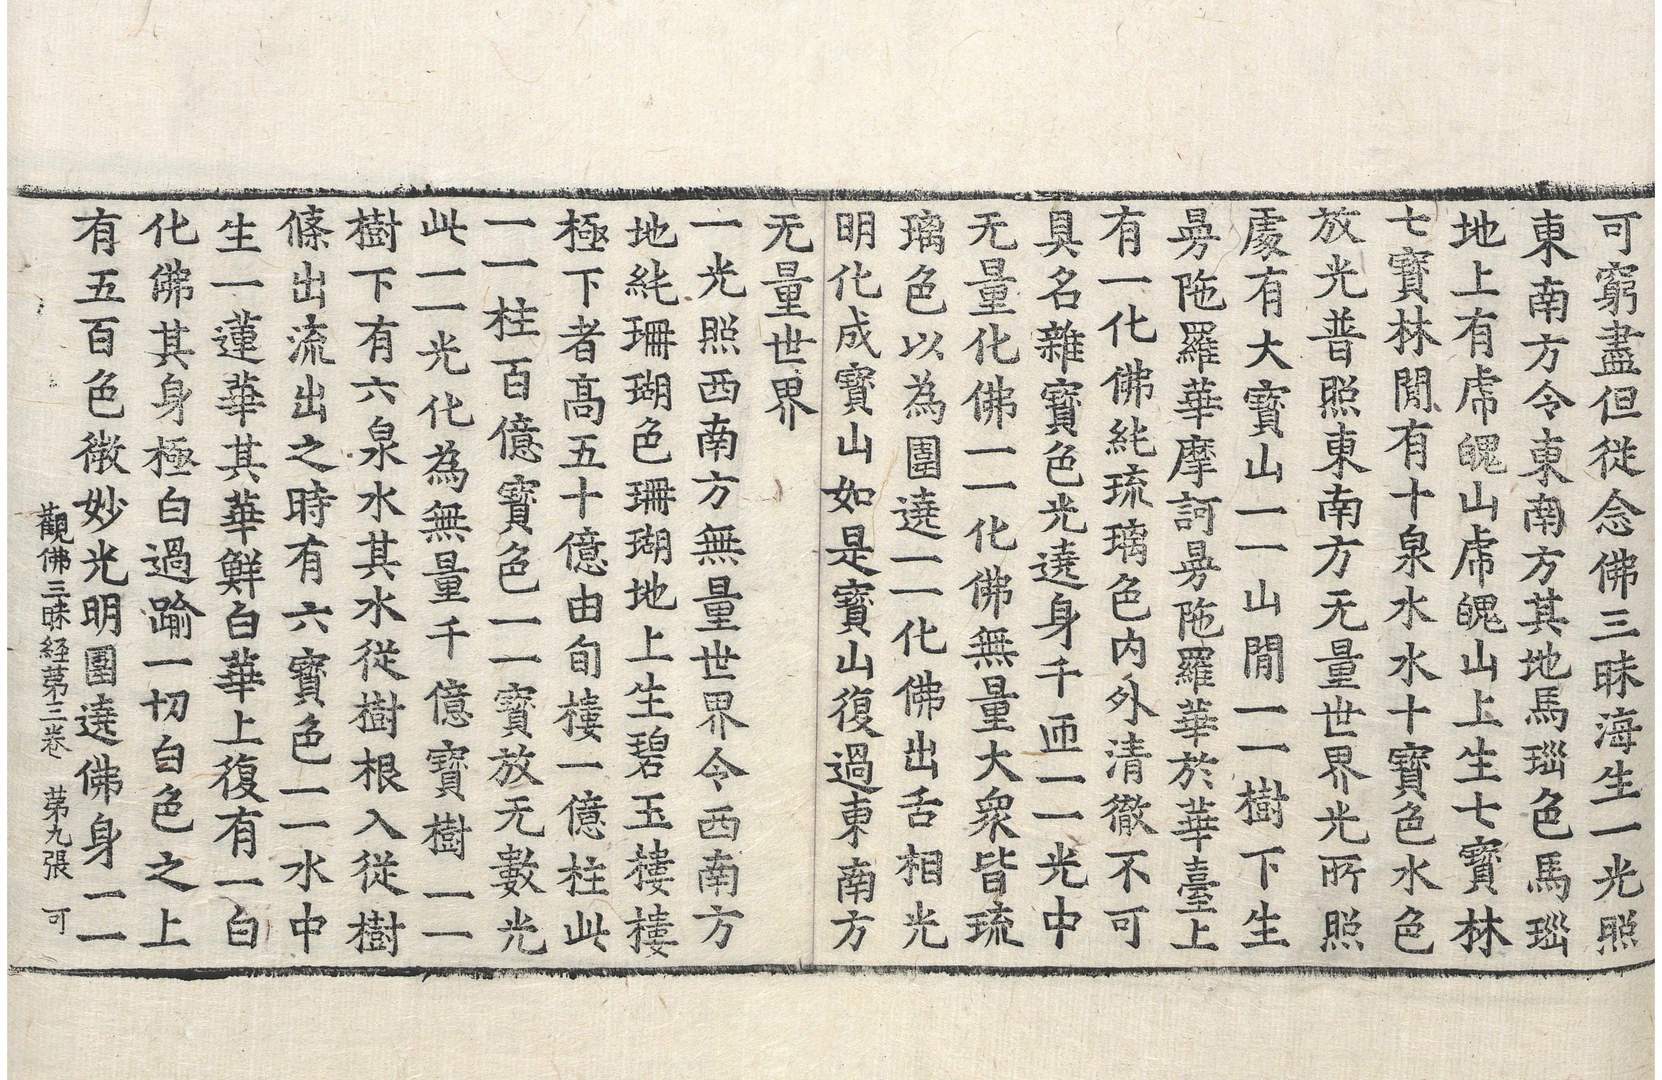 可窮盡但從念佛三昧海生一光照
東南方令東南方其地馬瑙色馬瑙
地上有虎魄山虎魄山上生七寶林
七寶林閒有十泉水水十寶色水色
放光普照東南方无量世界光所照
處有大寶山一一山閒一一樹下生
曼陁羅華摩訶曼陁羅華於華臺上
有一化佛純琉璃色内外清徹不可
具名雜寶色光遶身千匝一一光中
无量化佛一一化佛無量大衆皆琉
璃色以為圍遶一一化佛出舌相光
明化成寶山如是寶山復過東南方
无量世界
一光照西南方無量世界令西南方
地純珊瑚色珊瑚地上生碧玉樓樓
極下者高五十億由旬樓一億柱此
一一柱百億寶色一一寶放无數光
此一一光化為無量千億寶樹一一
樹下有六泉水其水從樹根入從樹
條出流出之時有六寶色一一水中
生一蓮華其華鮮白華上復有一白
化佛其身極白過踰一切白色之上
有五百色微妙光明圍遶佛身一一
觀佛三昧経苐三卷 苐九張 可